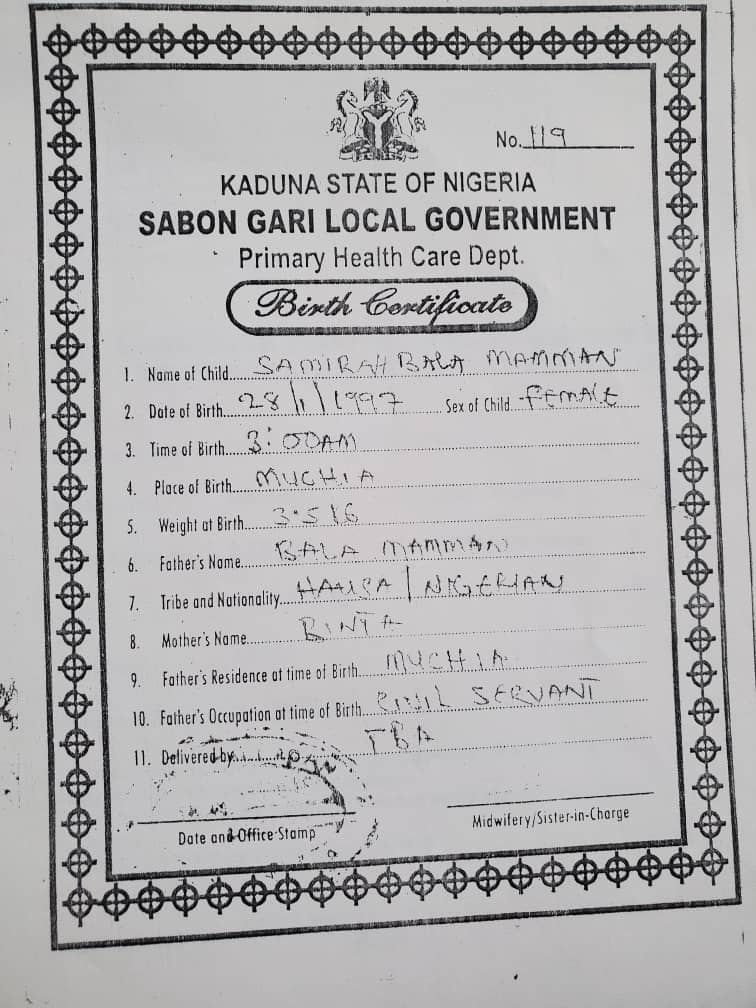 No. 119
KADUNA STATE OF NIGERIA
SABON GARI LOCAL GOVERNMENT
Primary Health Care Dept.
Birth Certificate
1. Name of Child SAMIRAH BALA MAMMAN
2. Date of Birth 28/1/1997 Sex of Child FEMALE
3. Time of Birth 3:00AM
4. Place of Birth MUCHIA
5. Weight at Birth
6. Father's Name BALA MAMMAN
7. Tribe and Nationality HAUSA / NIGERIAN
8. Mother's Name BINTA
9. Father's Residence at time of Birth MUCHIA
10. Father's Occupation at time of Birth CIVIL SERVANT
11. Delivered by TBA
Date and Office Stamp Midwifery/Sister-in-Charge